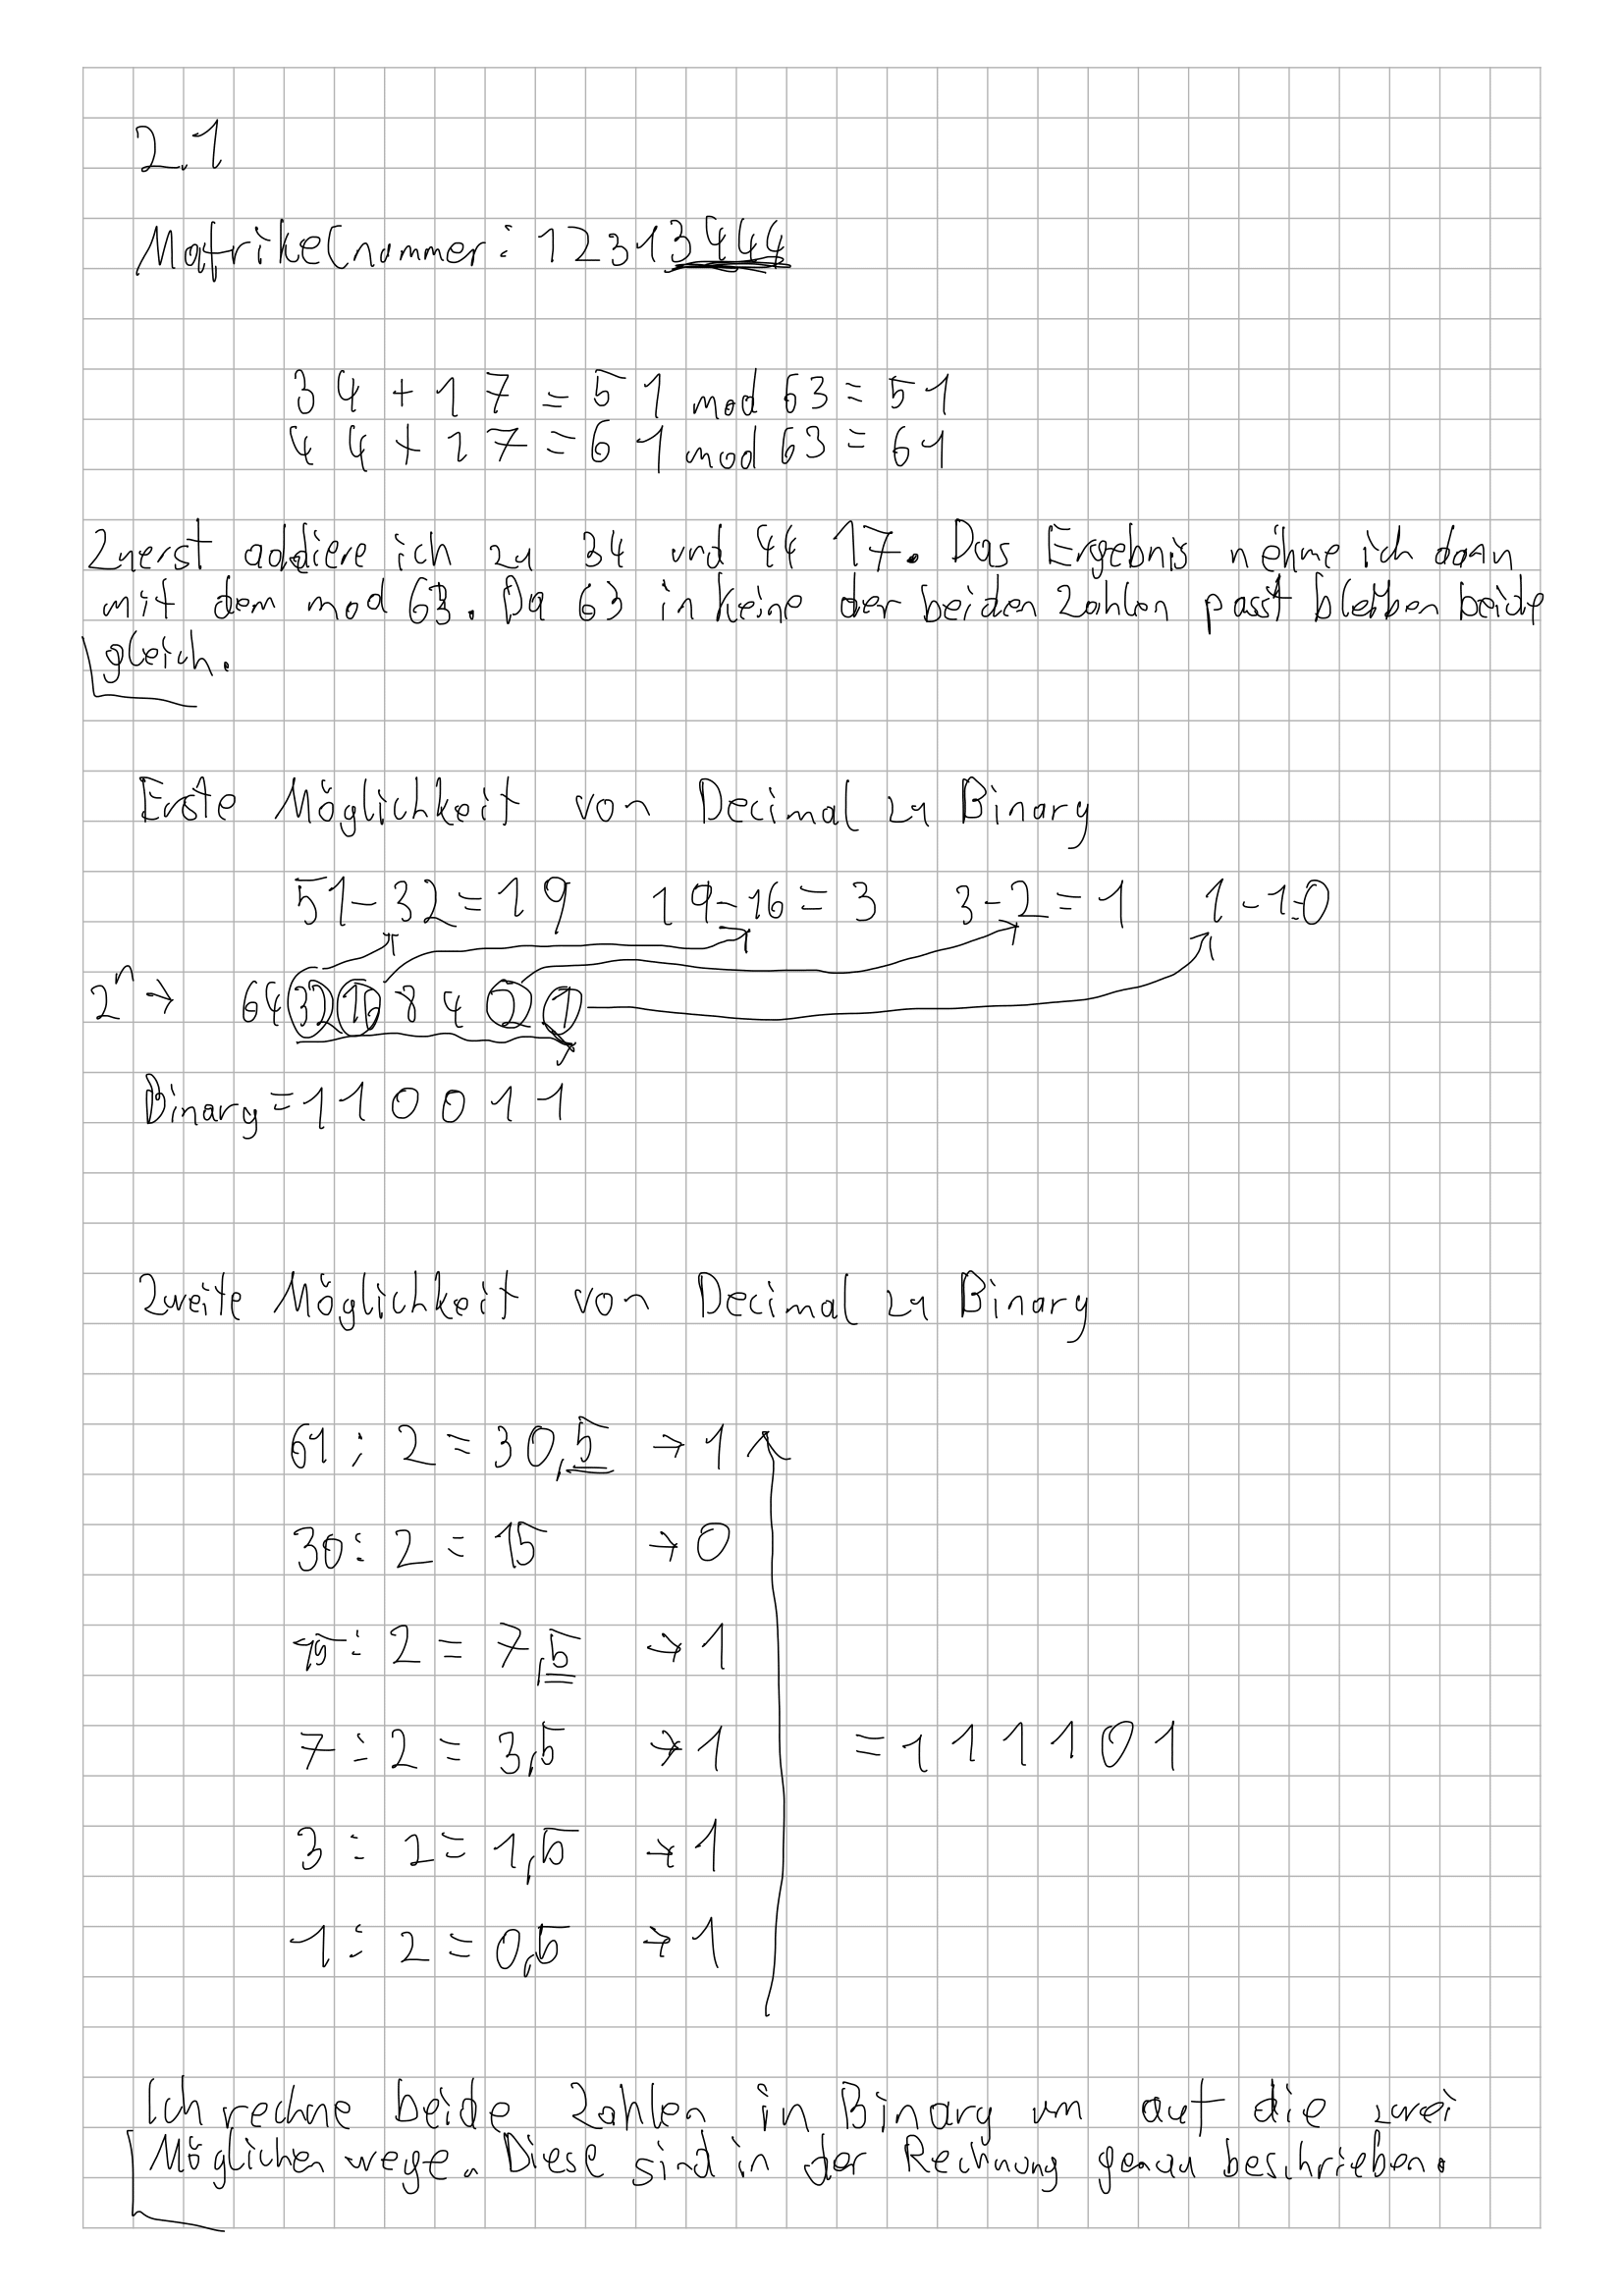 2.1
Matrikelnummer: 12313444
34 + 17 = 51 mod 63 = 51
44 + 17 = 61 mod 63 = 61
Zuerst addiere ich zu 34 und 44 17. Das Ergebnis nehme ich dann
mit dem mod 63. Da 63 in keine der beiden Zahlen passt bleiben beide
gleich.
Erste Möglichkeit von Decimal zu Binary
51-32=19 19-16=3 3-2=1 1-1=0
2^n → 64 32 16 8 4 2 1
Binary = 1 1 0 0 1 1
Zweite Möglichkeit von Decimal zu Binary
61 : 2 = 30,5 → 1
30 : 2 = 15 → 0
15 : 2 = 7,5 → 1
7 : 2 = 3,5 → 1 = 1 1 1 1 0 1
3 : 2 = 1,5 → 1
1 : 2 = 0,5 → 1
Ich rechne beide Zahlen in Binary um auf die zwei
Möglichen wege. Diese sind in der Rechnung genau beschrieben.